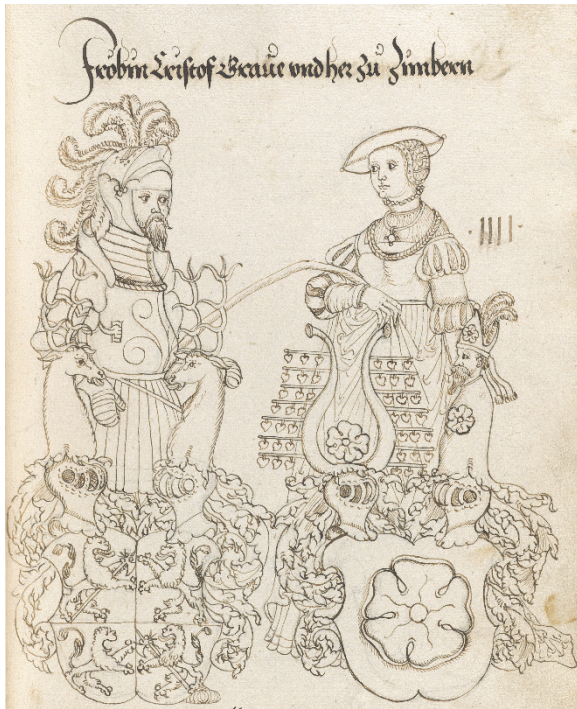 Frobin Cristof Graue vnd her zů Zimbern
· IIII ·